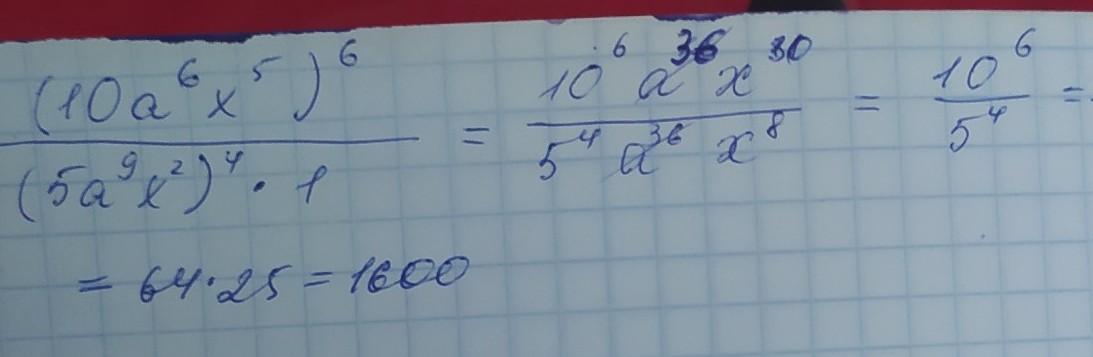 (10a⁶x⁵)⁶ / (5a⁹x²)⁴ · 1 = 10⁶ a³⁶ x³⁰ / 5⁴ a³⁶ x⁸ = 10⁶ / 5⁴ =
= 64 · 25 = 1600